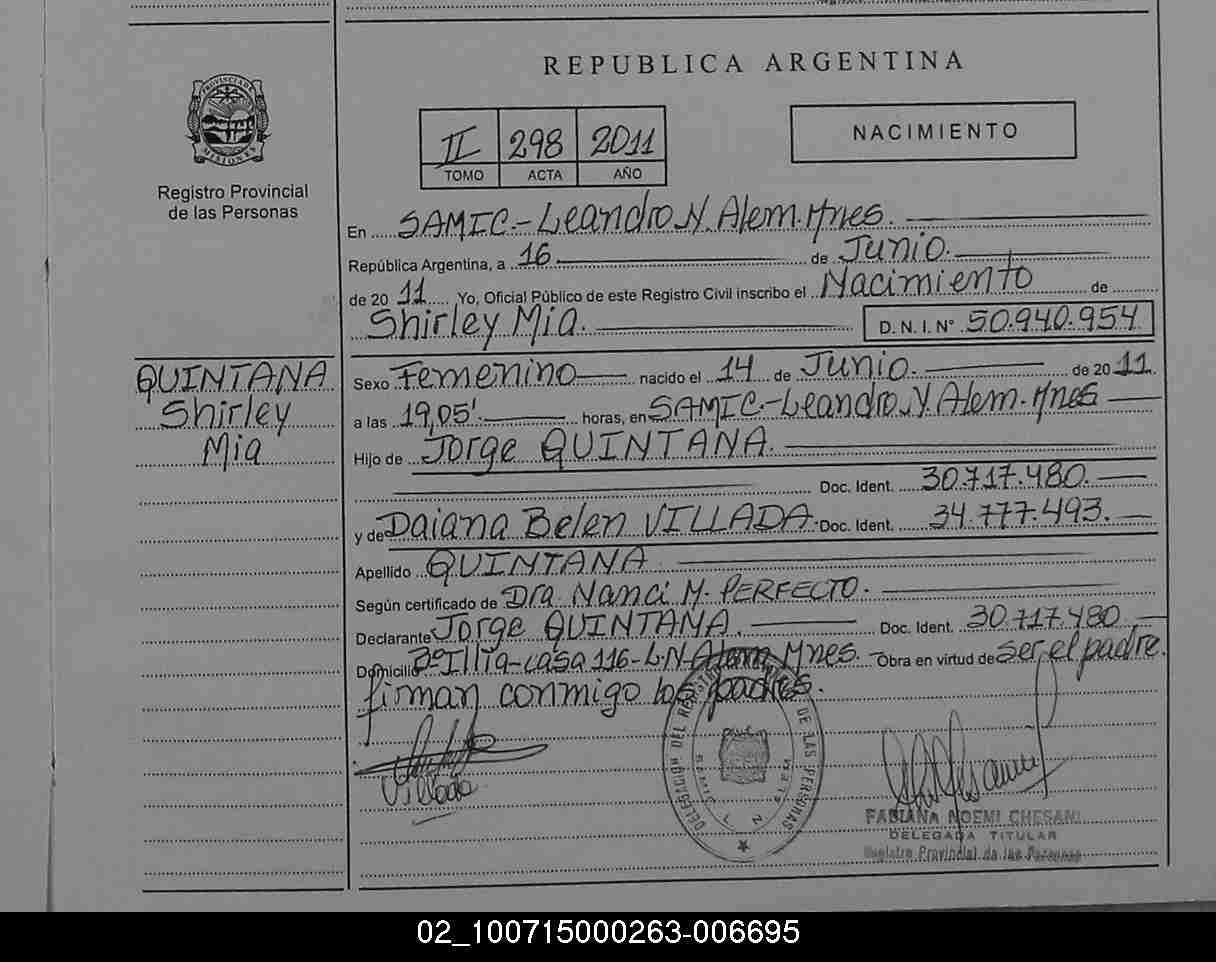 REPUBLICA ARGENTINA
PROVINCIA DE MISIONES
Registro Provincial
de las Personas
II 298 2011
TOMO ACTA AÑO
NACIMIENTO
En SAMIC.-Leandro N. Alem.Mnes.
República Argentina, a 16 de Junio.
de 20 11 Yo, Oficial Público de este Registro Civil inscribo el Nacimiento de
Shirley Mia. D. N. I. N° 50.940.954
QUINTANA
Shirley
Mia
Sexo Femenino nacido el 14 de Junio. de 20 11.
a las 19,05'. horas, en SAMIC.-Leandro N. Alem. Mnes
Hijo de Jorge QUINTANA.
Doc. Ident. 30.717.480.
y de Daiana Belen VILLADA. Doc. Ident. 34.777.493.
Apellido QUINTANA
Según certificado de Dra. Nanci M. PERFECTO.
Declarante Jorge QUINTANA. Doc. Ident. 30.717.480
Domicilio Bº Illia-casa 116-L.N.Alem Mnes. Obra en virtud de ser el padre.
firman conmigo los padres.
Villada
DELEGACIÓN DEL REGISTRO DE LAS PERSONAS
FABIANA NOEMI CHESANI
DELEGADA TITULAR
Registro Provincial de las Personas
02_100715000263-006695